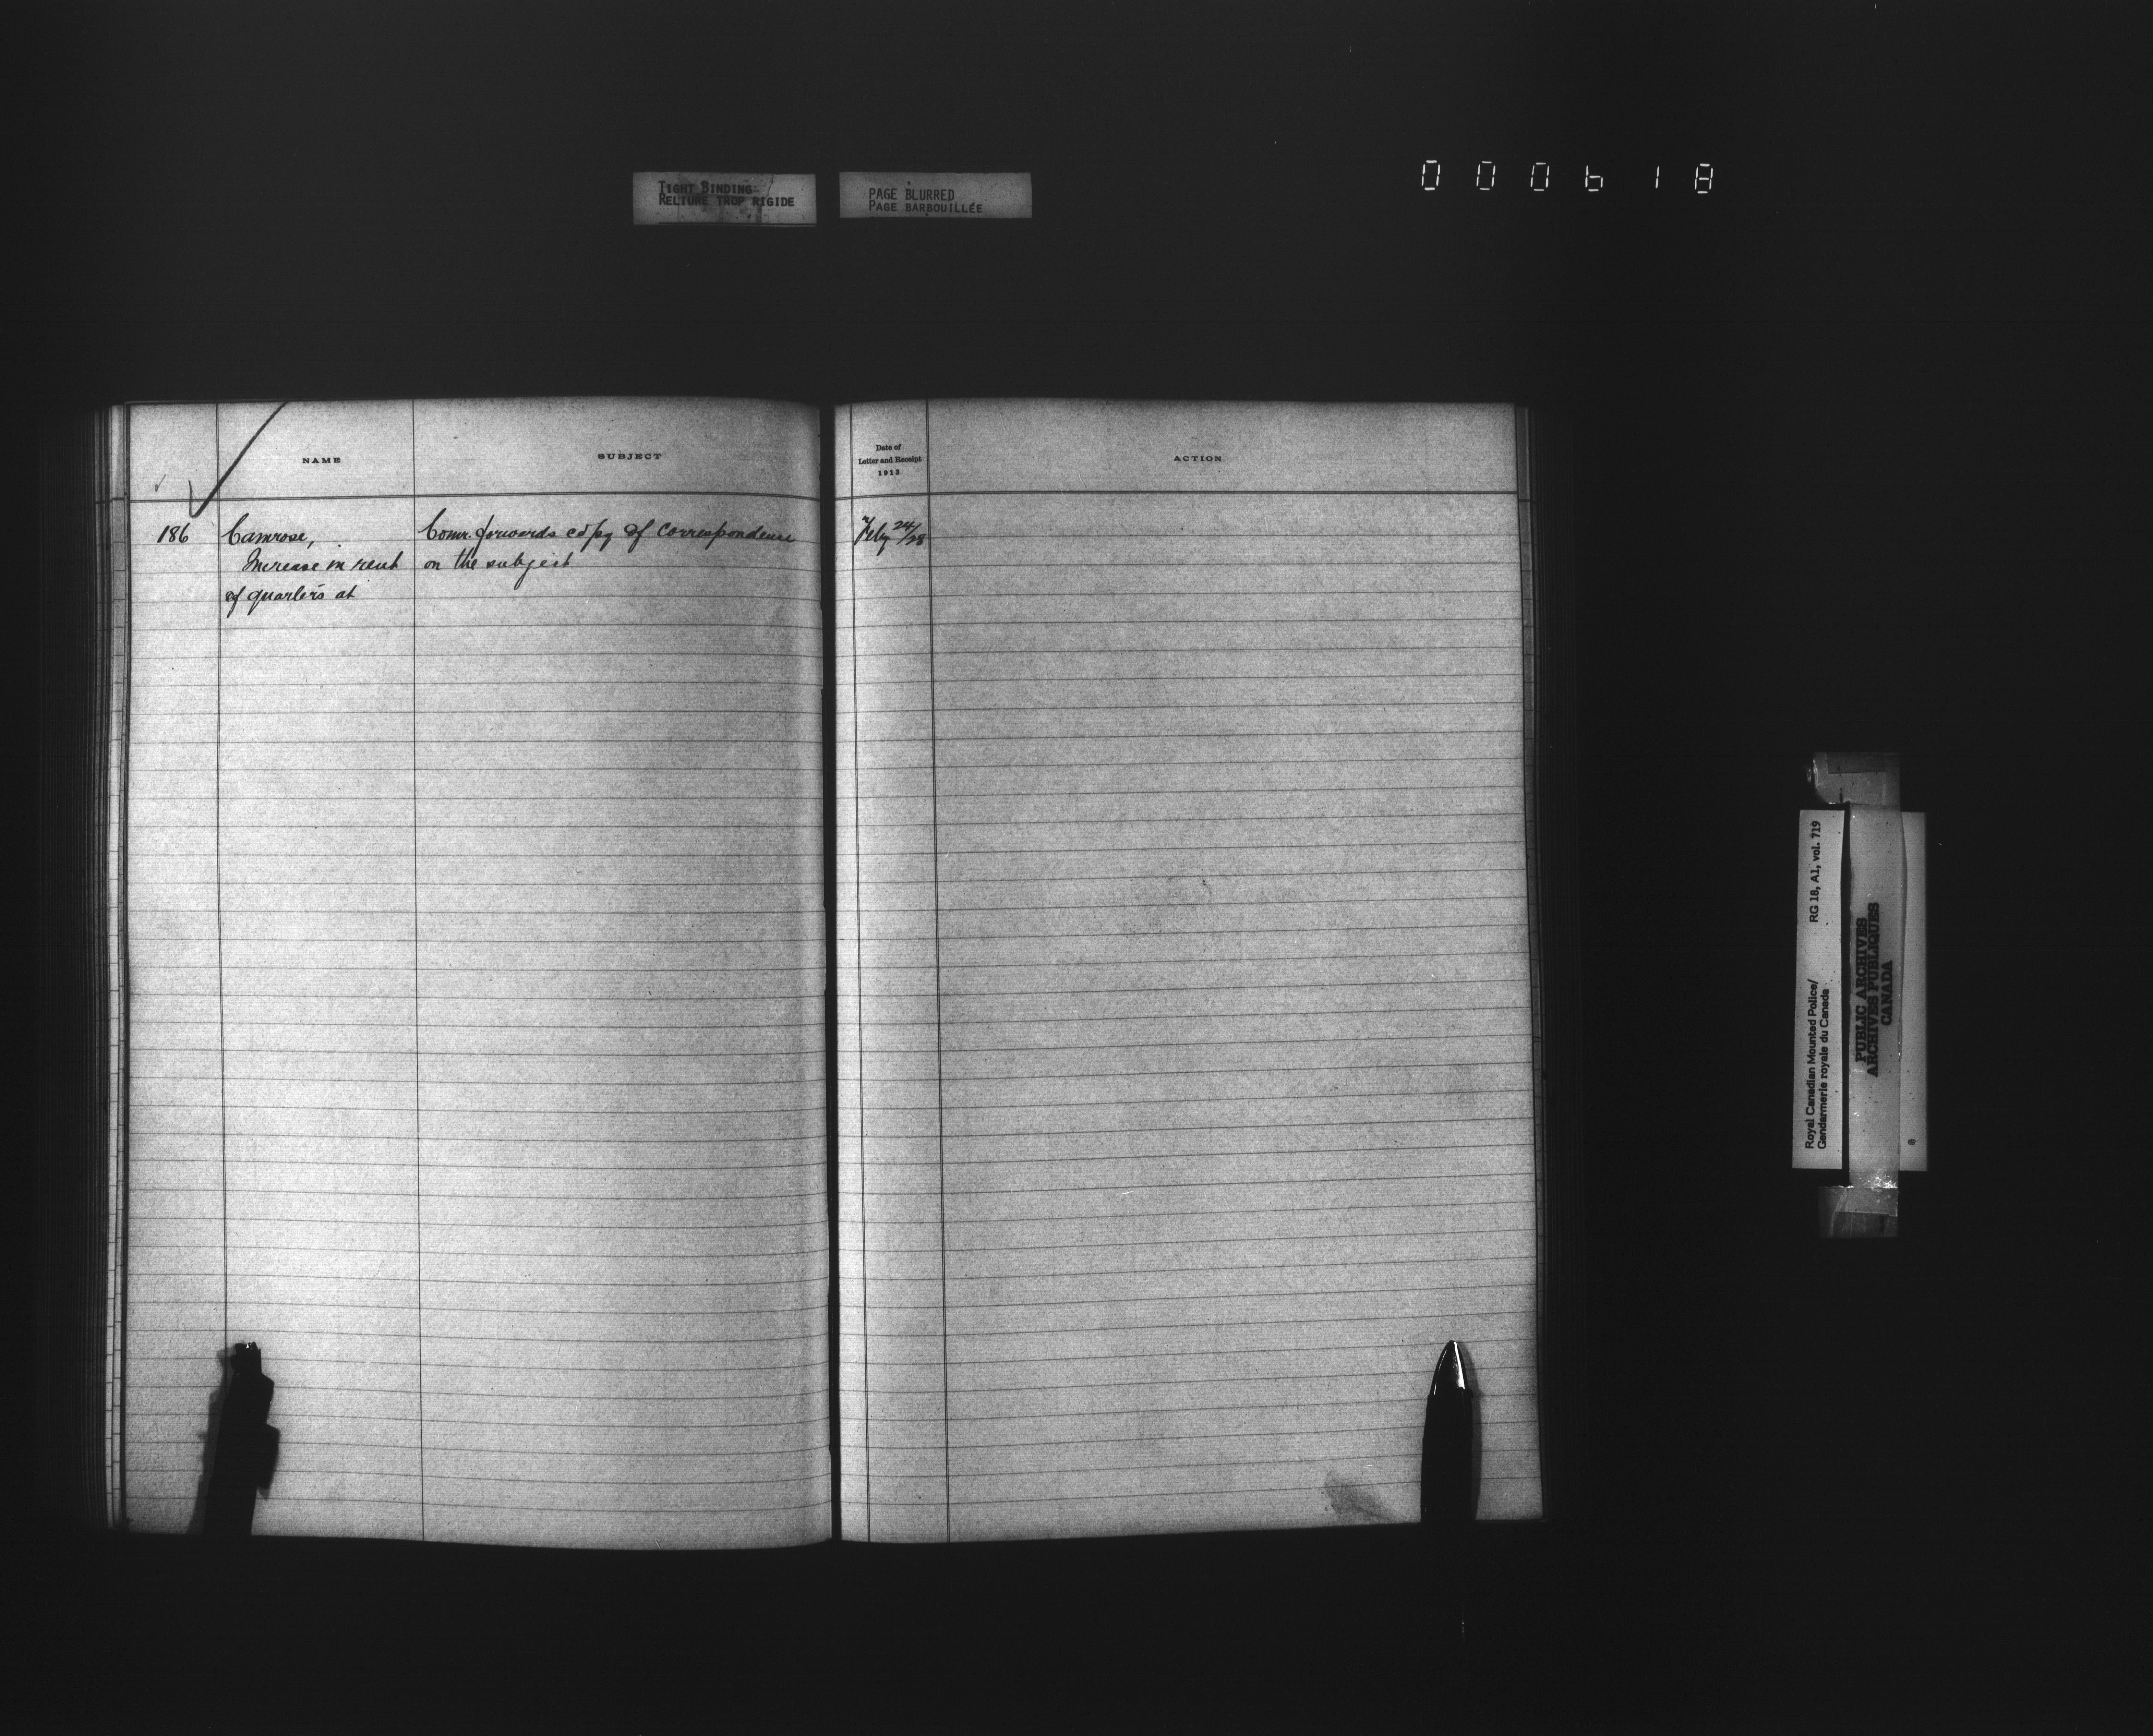 TIGHT BINDING
RELIURE TROP RIGIDE
PAGE BLURRED
PAGE BARBOUILLÉE
000618
NAME
SUBJECT
Date of
Letter and Receipt
1913
ACTION
186
Camrose,
Increase in rent
of quarters at
Comr. forwards copy of correspondence
on the subject
Feby 24/28
Royal Canadian Mounted Police/
Gendarmerie royale du Canada
RG 18, A1, vol. 719
PUBLIC ARCHIVES
ARCHIVES PUBLIQUES
CANADA